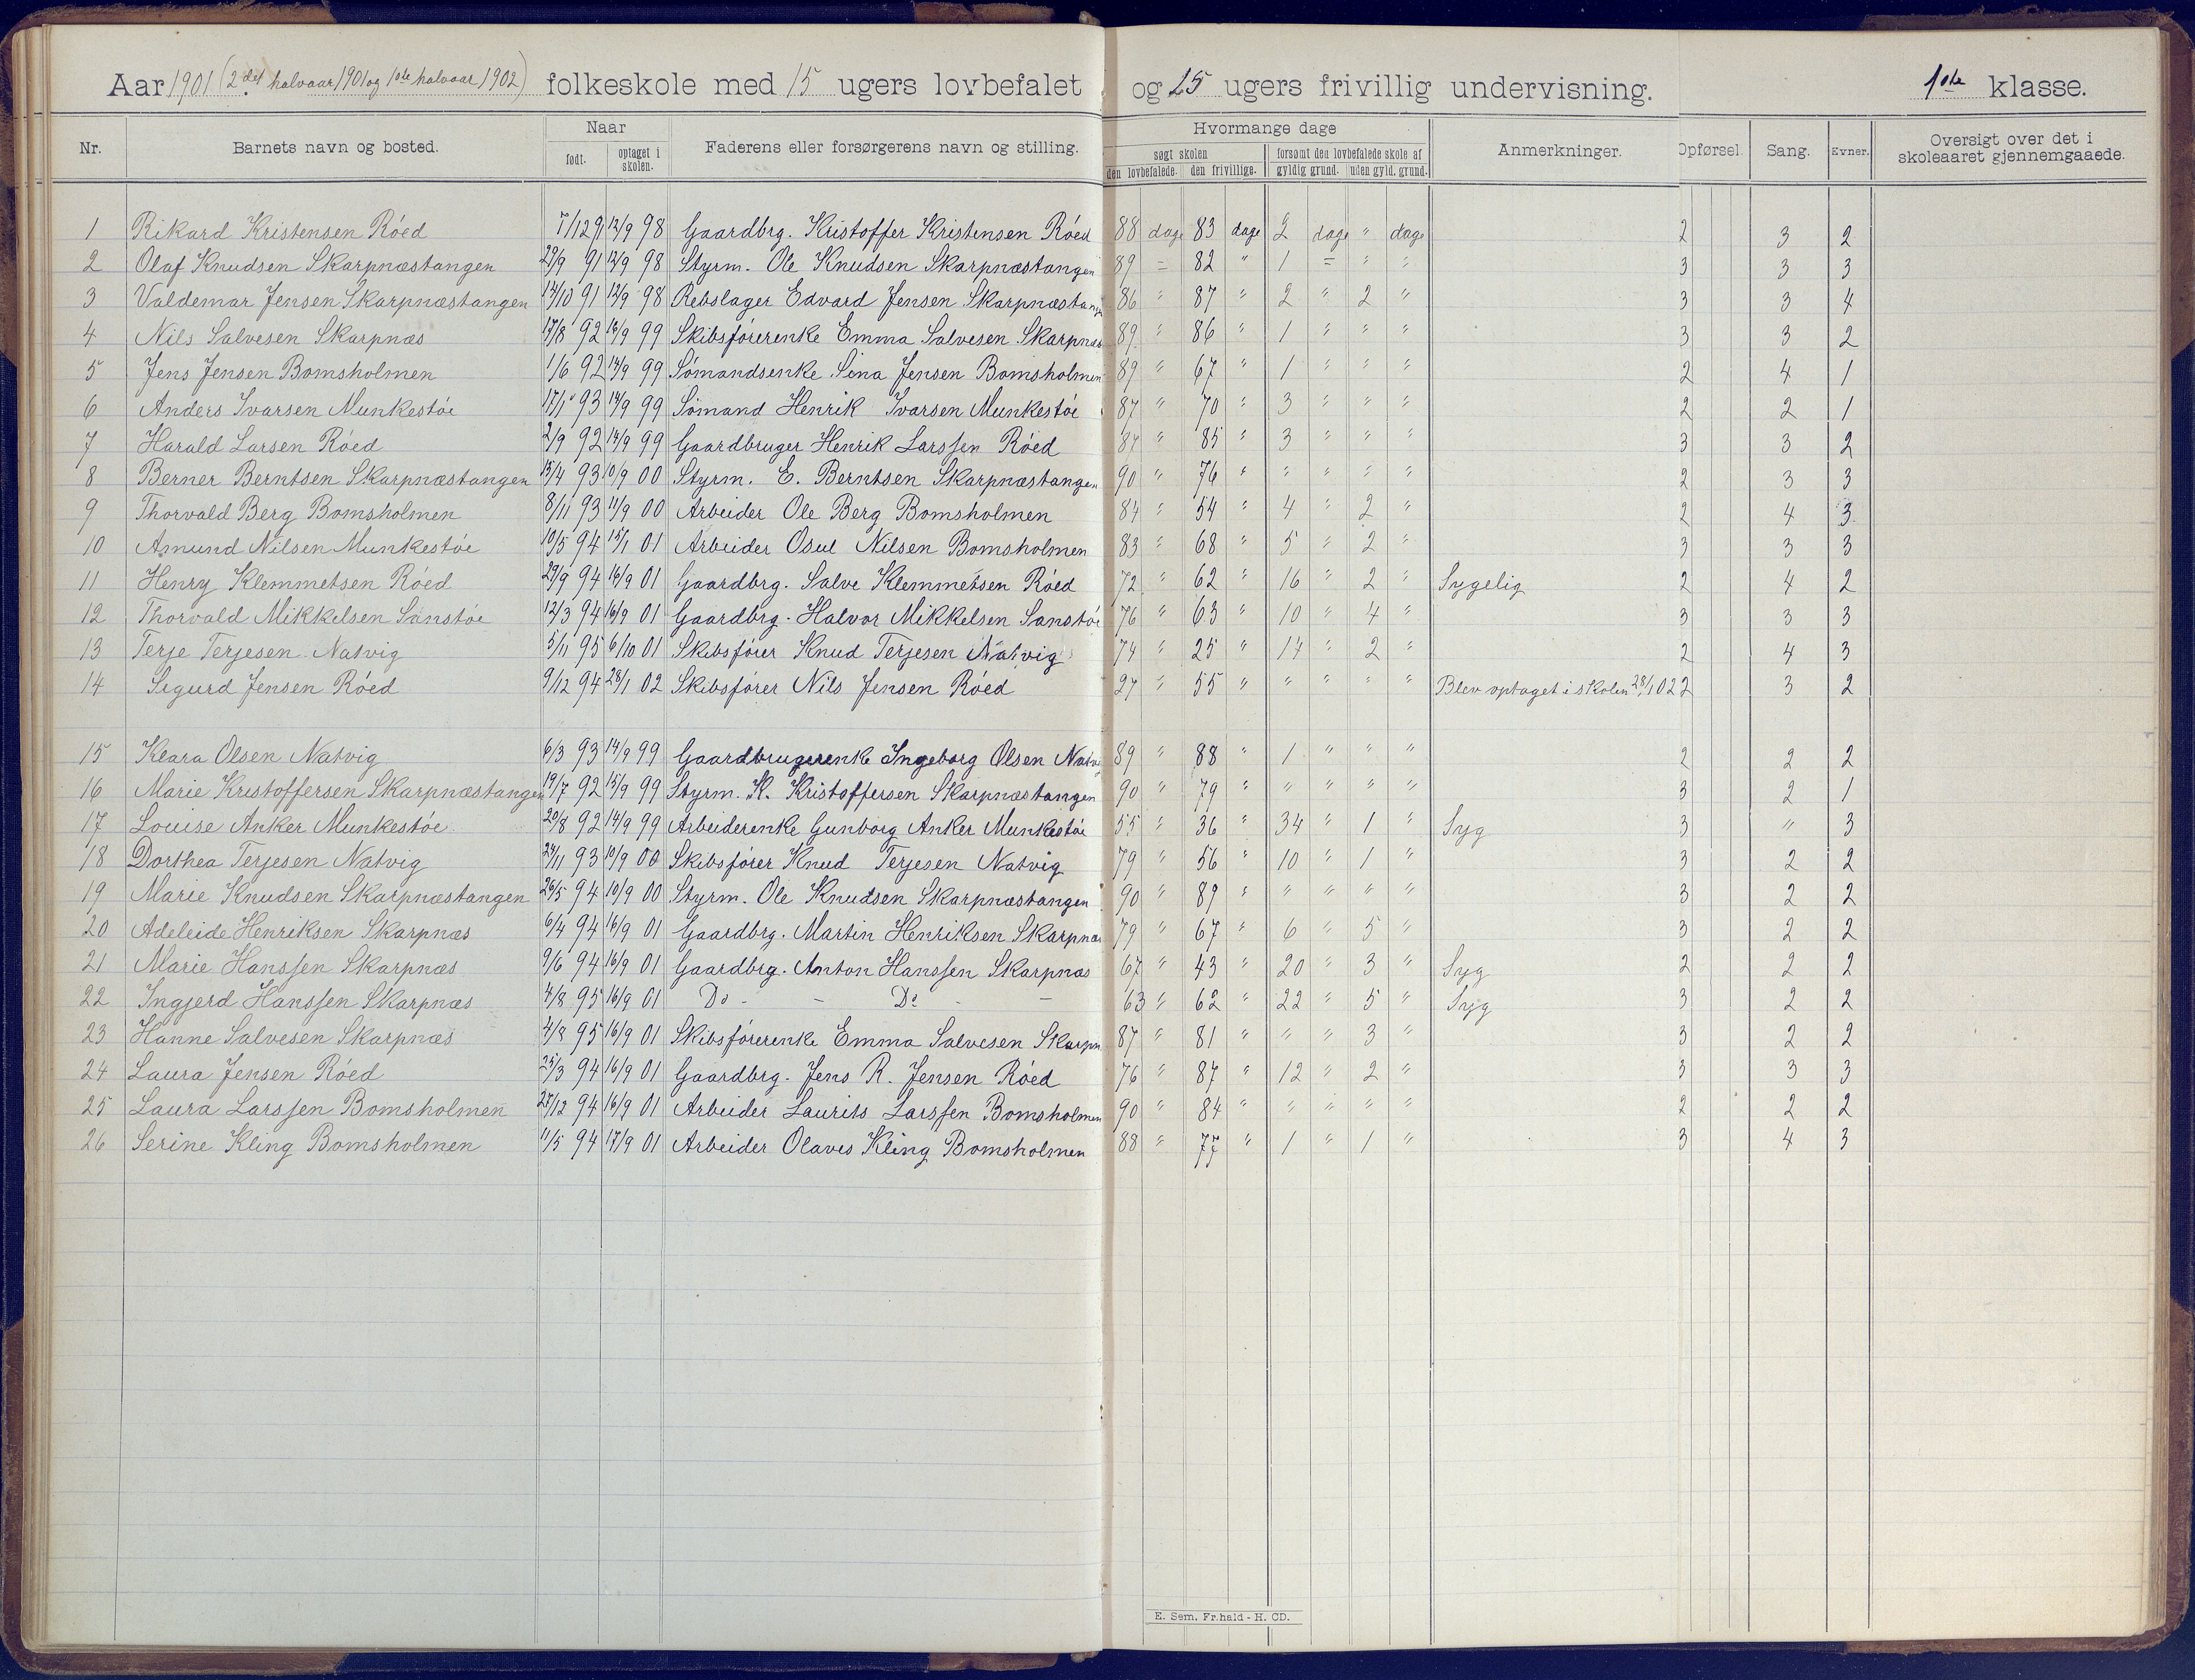 Aar 1901 (2det halvaar 1901 og 1ste halvaar 1902) folkeskole med 15 ugers lovbefalet og 25 ugers frivillig undervisning. 1ste klasse.
Nr. Barnets navn og bosted. Naar født. optaget i skolen. Faderens eller forsørgerens navn og stilling. Hvormange dage søgt skolen den lovbefalede. den frivillige. forsømt den lovbefalede skole af gyldig grund. uden gyld. grund. Anmerkninger. Opførsel. Sang. Evner. Oversigt over det i skoleaaret gjennemgaaede.
1 Rikard Kristensen Róed 7/12 9 12/9 98 Gaardbrg. Kristoffer Kristensen Róed 88 dage 83 dage 2 dage " dage 2 3 2
2 Olaf Knudsen Skarpnæstangen 29/9 91 12/9 98 Styrm. Ole Knudsen Skarpnæstangen 89 = 82 " 1 = " " 3 3 3
3 Valdemar Jensen Skarpnæstangen 14/10 91 12/9 98 Rebslager Edvard Jensen Skarpnæstang 86 " 87 " 2 " 2 " 3 3 4
4 Nils Salvesen Skarpnæs 17/8 92 14/9 99 Skibsførerenke Emma Salvesen Skarpnæs 89 " 86 " 1 " " " 3 3 2
5 Jens Jensen Bomsholmen 1/6 92 14/9 99 Sómandsenke Sina Jensen Bomsholmen 89 " 67 " 1 " " " 2 4 1
6 Anders Ivarsen Munkestóe 17/1 93 14/9 99 Sómand Henrik Ivarsen Munkestóe 87 " 70 " 3 " " " 2 2 1
7 Harald Larsen Róed 2/9 92 14/9 99 Gaardbruger Henrik Larssen Róed 87 " 85 " 3 " " " 3 3 2
8 Berner Berntsen Skarpnæstangen 15/4 93 10/9 00 Styrm. E. Berntsen Skarpnæstangen 90 " 76 " " " " " 2 3 3
9 Thorvald Berg Bomsholmen 8/11 93 11/9 00 Arbeider Ole Berg Bomsholmen 84 " 54 " 4 " 2 " 2 4 3
10 Amund Nilsen Munkestóe 10/5 94 15/1 01 Arbeider Osul Nilsen Bomsholmen 83 " 68 " 5 " 2 " 3 3 3
11 Henry Klemmetsen Róed 29/9 94 16/9 01 Gaardbrg. Salve Klemmetsen Róed 72 " 62 " 16 " 2 " Sygelig 2 4 2
12 Thorvald Mikkelsen Sanstóe 12/3 94 16/9 01 Gaardbrg. Halvor Mikkelsen Sanstóe 76 " 63 " 10 " 4 " 3 3 3
13 Terje Terjesen Natvig 5/11 95 6/10 01 Skibsfører Knud Terjesen Natvig 74 " 25 " 14 " 2 " 2 4 3
14 Sigurd Jensen Róed 9/12 94 28/1 02 Skibsfører Nils Jensen Róed 27 " 55 " " " " " Blev optaget i skolen 28/1 02 2 3 2
15 Klara Olsen Natvig 6/3 93 14/9 99 Gaardbrugerenke Ingeborg Olsen Natvi 89 " 88 " 1 " " " 2 2 2
16 Marie Kristoffersen Skarpnæstangen 19/7 92 15/9 99 Styrm. K. Kristoffersen Skarpnæstangen 90 " 79 " " " " " 3 2 1
17 Louise Anker Munkestóe 20/8 92 14/9 99 Arbeiderenke Gunborg Anker Munkestóe 55 " 36 " 34 " 1 " Syg 3 " 3
18 Dorthea Terjesen Natvig 24/11 93 10/9 00 Skibsfører Knud Terjesen Natvig 79 " 56 " 10 " 1 " 3 2 2
19 Marie Knudsen Skarpnæstangen 26/5 94 10/9 00 Styrm. Ole Knudsen Skarpnæstangen 90 " 89 " " " " " 3 2 2
20 Adeleide Henriksen Skarpnæs 6/4 94 16/9 01 Gaardbrg. Martin Henriksen Skarpnæs 79 " 67 " 6 " 5 " 3 2 2
21 Marie Hanssen Skarpnæs 9/6 94 16/9 01 Gaardbrg. Anton Hanssen Skarpnæs 67 " 43 " 20 " 3 " Syg 2 2 2
22 Ingjerd Hanssen Skarpnæs 4/8 95 16/9 01 Do - - Do - - 63 " 62 " 22 " 5 " Syg 3 2 2
23 Hanne Salvesen Skarpnæs 4/8 95 16/9 01 Skibsførerenke Emma Salvesen Skarpn 87 " 81 " " " 3 " 3 2 2
24 Laura Jensen Róed 25/3 94 16/9 01 Gaardbrg. Jens R. Jensen Róed 76 " 87 " 12 " 2 " 3 3 3
25 Laura Larssen Bomsholmen 27/12 94 16/9 01 Arbeider Laurits Larssen Bomsholmen 90 " 84 " " " " " 2 2 2
26 Serine Kling Bomsholmen 11/5 94 17/9 01 Arbeider Olaves Kling Bomsholmen 88 " 77 " 1 " 1 " 3 4 3
E. Sem. Fr.hald - H. CD.